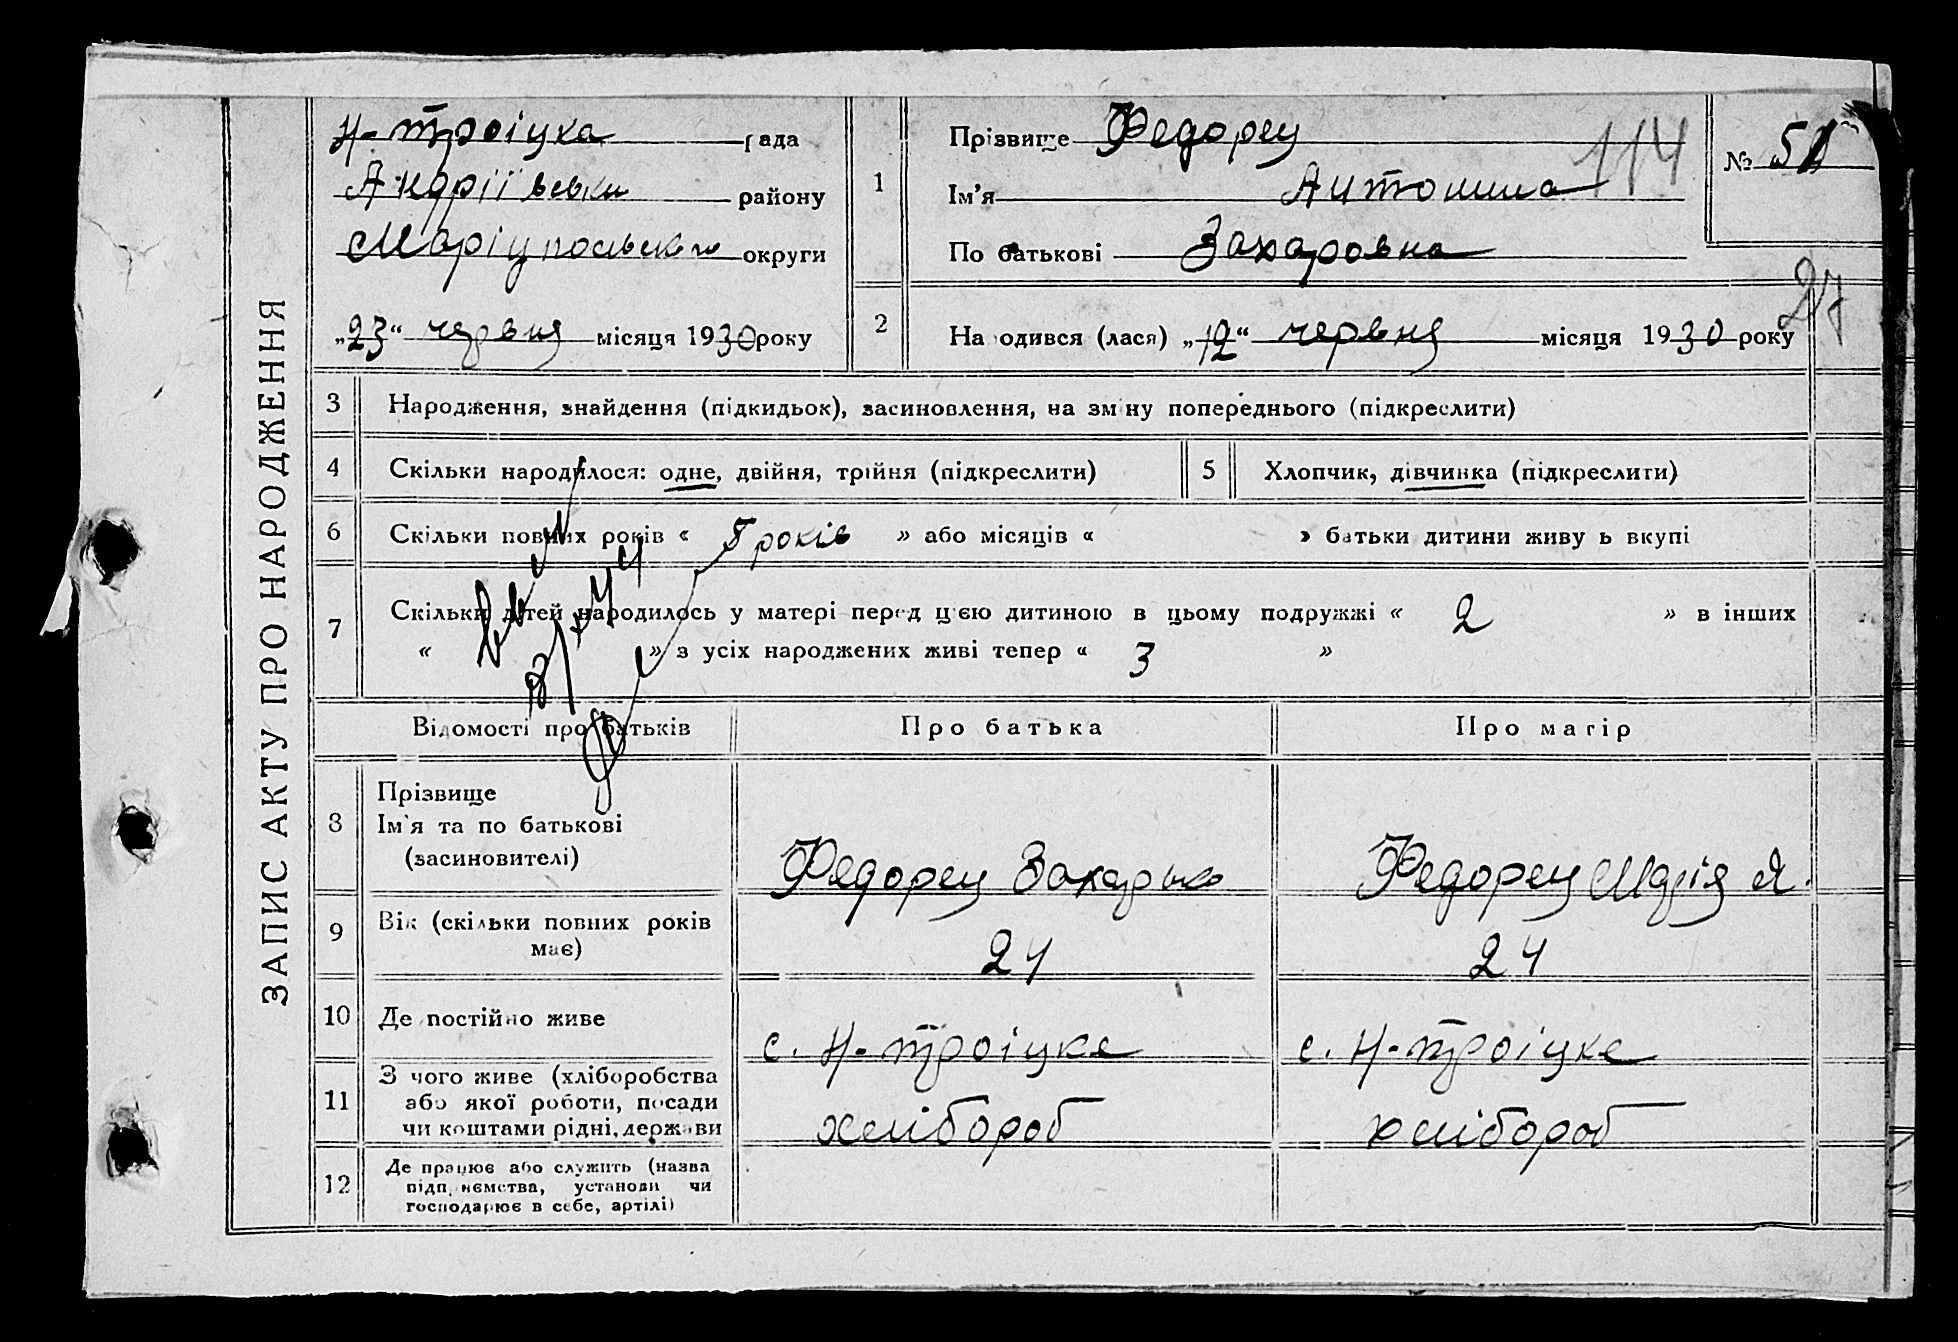 ЗАПИС АКТУ ПРО НАРОДЖЕННЯ
Н-Троіцка рада
Андріївськи району
Маріупольского округи
„23“ червня місяця 1930 року
1
Прізвище Федорец
Ім'я Антонина
По батькові Захаровна
114
№ 51
27
2
Народився (лася) „12“ червня місяця 1930 року
3 Народження, знайдення (підкидьок), засиновлення, на зміну попереднього (підкреслити)
4 Скільки народилося: одне, двійня, трійня (підкреслити) 5 Хлопчик, дівчинка (підкреслити)
6 Скільки повних років « 5 років » або місяців « » батьки дитини живуть вкупі
7 Скільки дітей народилось у матері перед цією дитиною в цьому подружжі « 2 » в інших
« » з усіх народжених живі тепер « 3 »
Відомості про батьків Про батька Про матір
8 Прізвище
Ім'я та по батькові
(засиновителі)
Федорец Захарько Федорец Марія Я.
9 Вік (скільки повних років
має)
24 24
10 Де постійно живе
с. Н-Троіцке с. Н-Троіцке
11 З чого живе (хліборобства
або якої роботи, посади
чи коштами рідні, держави
хлібороб хлібороб
12 Де працює або служить (назва
підприємства, установи чи
господарює в себе, артілі)